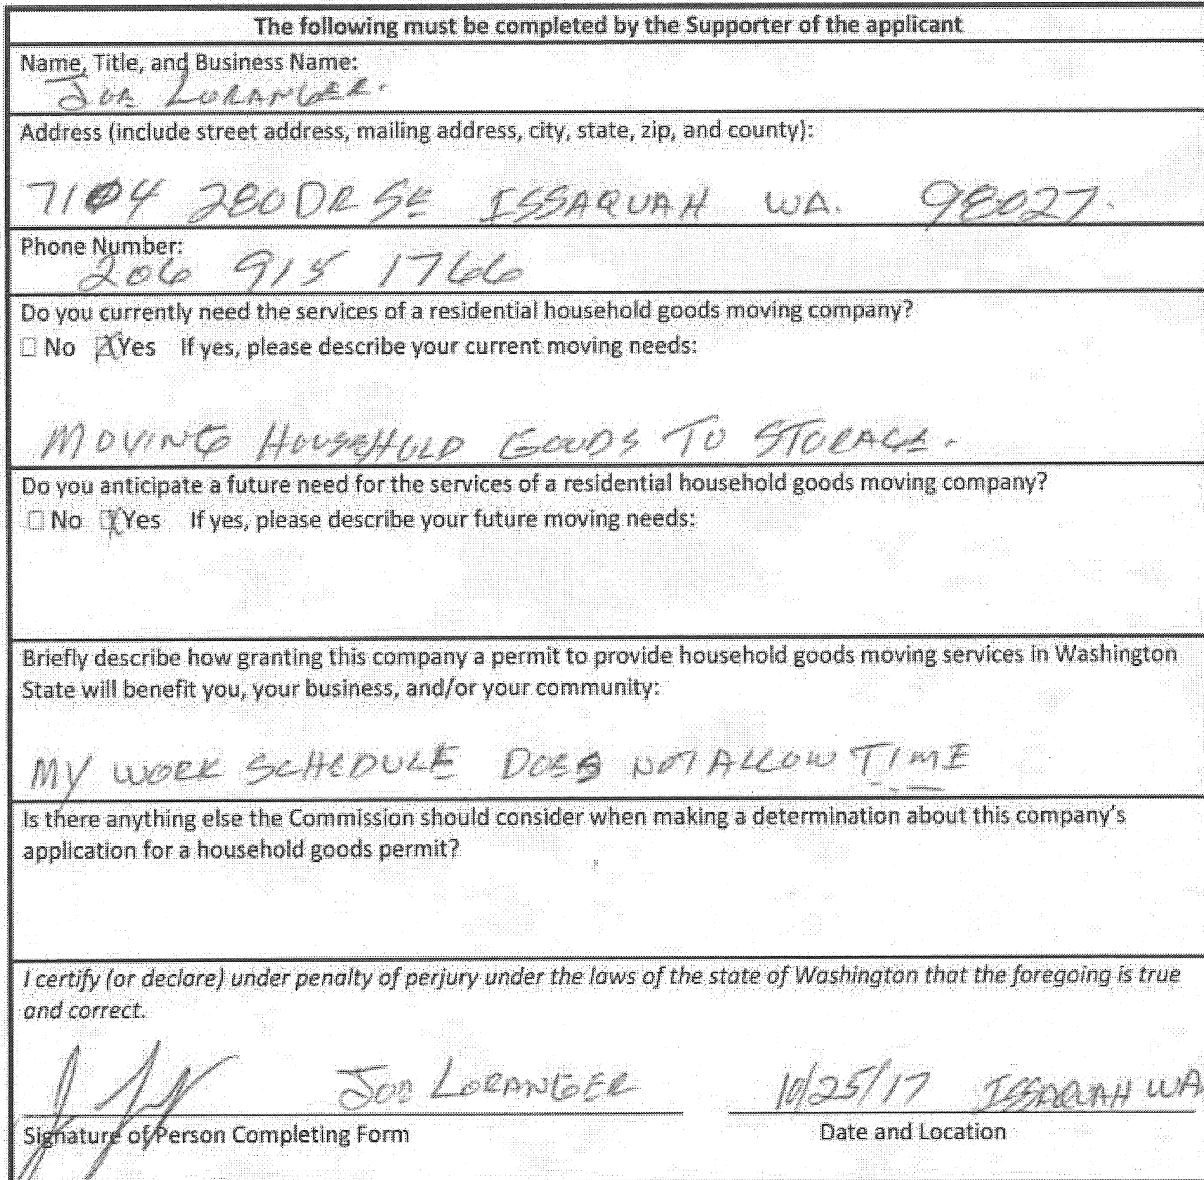 The following must be completed by the Supporter of the applicant
Name, Title, and Business Name:
JOE LORANGER.
Address (include street address, mailing address, city, state, zip, and county):
7104 280DR SE ISSAQUAH WA. 98027.
Phone Number:
206 915 1766
Do you currently need the services of a residential household goods moving company?
☐ No ☒ Yes If yes, please describe your current moving needs:
MOVING HOUSEHOLD GOODS TO STORAGE.
Do you anticipate a future need for the services of a residential household goods moving company?
☐ No ☒ Yes If yes, please describe your future moving needs:
Briefly describe how granting this company a permit to provide household goods moving services in Washington
State will benefit you, your business, and/or your community:
MY WORK SCHEDULE DOES NOT ALLOW TIME
Is there anything else the Commission should consider when making a determination about this company's
application for a household goods permit?
I certify (or declare) under penalty of perjury under the laws of the state of Washington that the foregoing is true
and correct.
JOE LORANGER 10/25/17 ISSAQUAH WA
Signature of Person Completing Form Date and Location